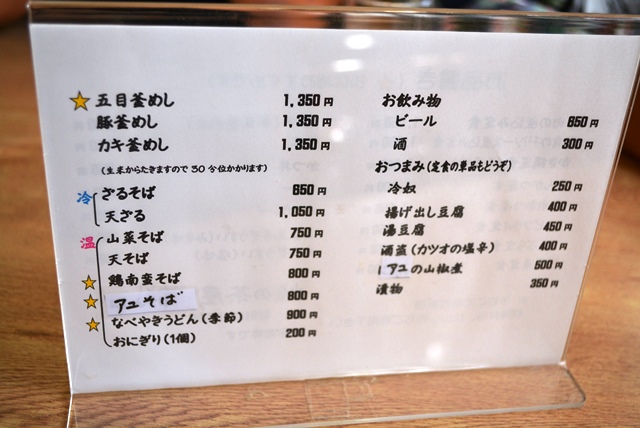 ★ 五目釜めし 1,350円
豚釜めし 1,350円
カキ釜めし 1,350円
(生米からたきますので30分位かかります)
冷 ざるそば 650円
天ざる 1,050円
温 山菜そば 750円
天そば 750円
★ 鶏南蛮そば 800円
★ アユそば 800円
★ なべやきうどん(季節) 900円
おにぎり(1個) 200円
お飲み物
ビール 650円
酒 300円
おつまみ(定食の単品もどうぞ)
冷奴 250円
揚げ出し豆腐 400円
湯豆腐 450円
酒盗(カツオの塩辛) 400円
アユの山椒煮 500円
漬物 350円